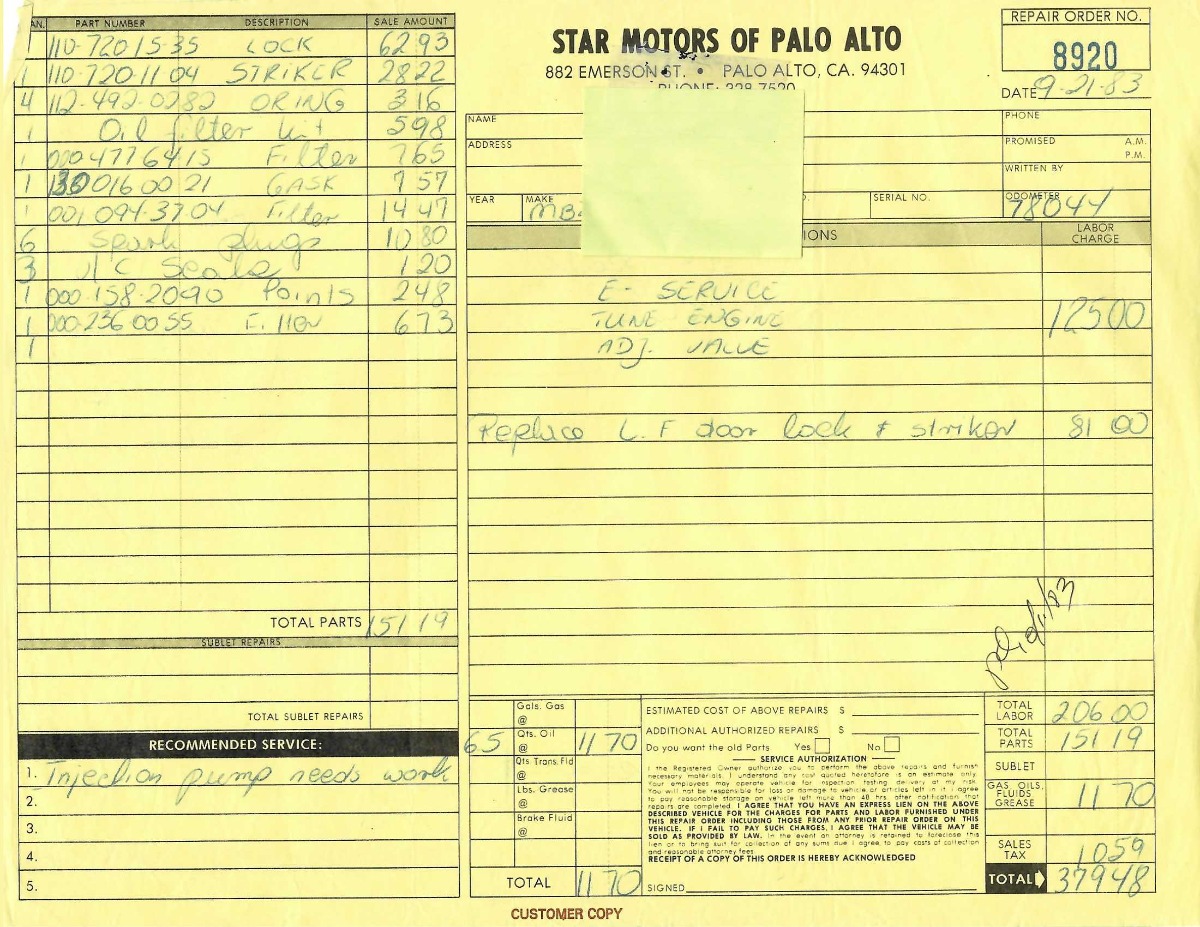 QUAN. PART NUMBER DESCRIPTION SALE AMOUNT
1 110-720 15-35 LOCK 62 93
1 110-720-11 04 STRIKER 28 22
4 112-492-0282 ORING 3 16
1 Oil filter kit 5 98
1 000 477 64 15 Filter 7 65
1 130 016 00 21 GASK 7 57
1 001 094-37 04 Filter 14 47
6 Spark plugs 10 80
3 Seals 1 20
1 000-158-2090 Points 2 48
1 000-236 00 55 Filter 6 73
1
TOTAL PARTS 151 19
SUBLET REPAIRS
TOTAL SUBLET REPAIRS
RECOMMENDED SERVICE:
1. Injection pump needs work
2.
3.
4.
5.
STAR MOTORS OF PALO ALTO
882 EMERSON ST. • PALO ALTO, CA. 94301
PHONE: 328-7520
REPAIR ORDER NO.
8920
DATE 9-21-83
NAME
PHONE
ADDRESS
PROMISED A.M.
P.M.
WRITTEN BY
YEAR MAKE SERIAL NO. ODOMETER
MBZ 78044
IONS LABOR CHARGE
E- SERVICE
TUNE ENGINE 125 00
ADJ. VALVE
Replace L.F door lock & striker 81 00
Gals. Gas
@
65 Qts. Oil
@ 11 70
Qts. Trans. Fld
@
Lbs. Grease
@
Brake Fluid
@
TOTAL 11 70
ESTIMATED COST OF ABOVE REPAIRS $
ADDITIONAL AUTHORIZED REPAIRS $
Do you want the old Parts Yes No
SERVICE AUTHORIZATION
I the Registered Owner authorize you to perform the above repairs and furnish
necessary materials. I understand any cost quoted heretofore is an estimate only.
Your employees may operate vehicle for inspection testing delivery at my risk.
You will not be responsible for loss or damage to vehicle or articles left in it I agree
to pay reasonable storage on vehicle left more than 48 hrs. after notification that
repairs are completed. I AGREE THAT YOU HAVE AN EXPRESS LIEN ON THE ABOVE
DESCRIBED VEHICLE FOR THE CHARGES FOR PARTS AND LABOR FURNISHED UNDER
THIS REPAIR ORDER INCLUDING THOSE FROM ANY PRIOR REPAIR ORDER ON THIS
VEHICLE. IF I FAIL TO PAY SUCH CHARGES, I AGREE THAT THE VEHICLE MAY BE
SOLD AS PROVIDED BY LAW. In the event an attorney is retained to foreclose this
lien or to bring suit for collection of any sums due I agree to pay costs of collection
and reasonable attorney fees
RECEIPT OF A COPY OF THIS ORDER IS HEREBY ACKNOWLEDGED
SIGNED
TOTAL LABOR 206 00
TOTAL PARTS 151 19
SUBLET
GAS, OILS, FLUIDS GREASE 11 70
SALES TAX 10 59
TOTAL 379 48
CUSTOMER COPY